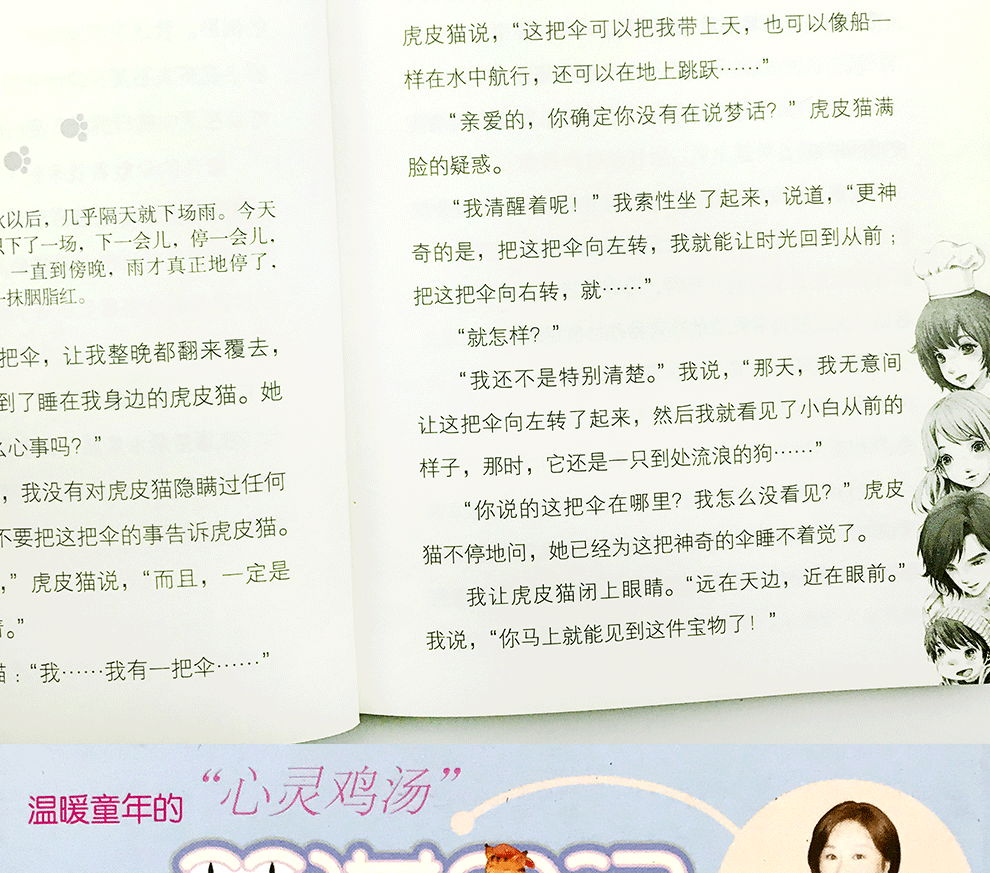 以后，几乎隔天就下场雨。今天
下了一场，下一会儿，停一会儿，
一直到傍晚，雨才真正地停了，
一抹胭脂红。
把伞，让我整晚都翻来覆去，
到了睡在我身边的虎皮猫。她
么心事吗？”
，我没有对虎皮猫隐瞒过任何
不要把这把伞的事告诉虎皮猫。
，”虎皮猫说，“而且，一定是
。”
：“我……我有一把伞……”
虎皮猫说，“这把伞可以把我带上天，也可以像船一
样在水中航行，还可以在地上跳跃……”
“亲爱的，你确定你没有在说梦话？”虎皮猫满
脸的疑惑。
“我清醒着呢！”我索性坐了起来，说道，“更神
奇的是，把这把伞向左转，我就能让时光回到从前；
把这把伞向右转，就……”
“就怎样？”
“我还不是特别清楚。”我说，“那天，我无意间
让这把伞向左转了起来，然后我就看见了小白从前的
样子，那时，它还是一只到处流浪的狗……”
“你说的这把伞在哪里？我怎么没看见？”虎皮
猫不停地问，她已经为这把神奇的伞睡不着觉了。
我让虎皮猫闭上眼睛。“远在天边，近在眼前。”
我说，“你马上就能见到这件宝物了！”
温暖童年的“心灵鸡汤”